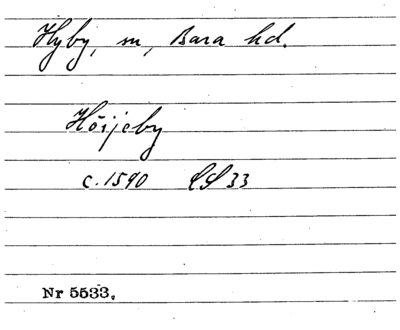 Hyby, sn, Bara hd.
Höijeby
c. 1590 LS 33
Nr 5533.